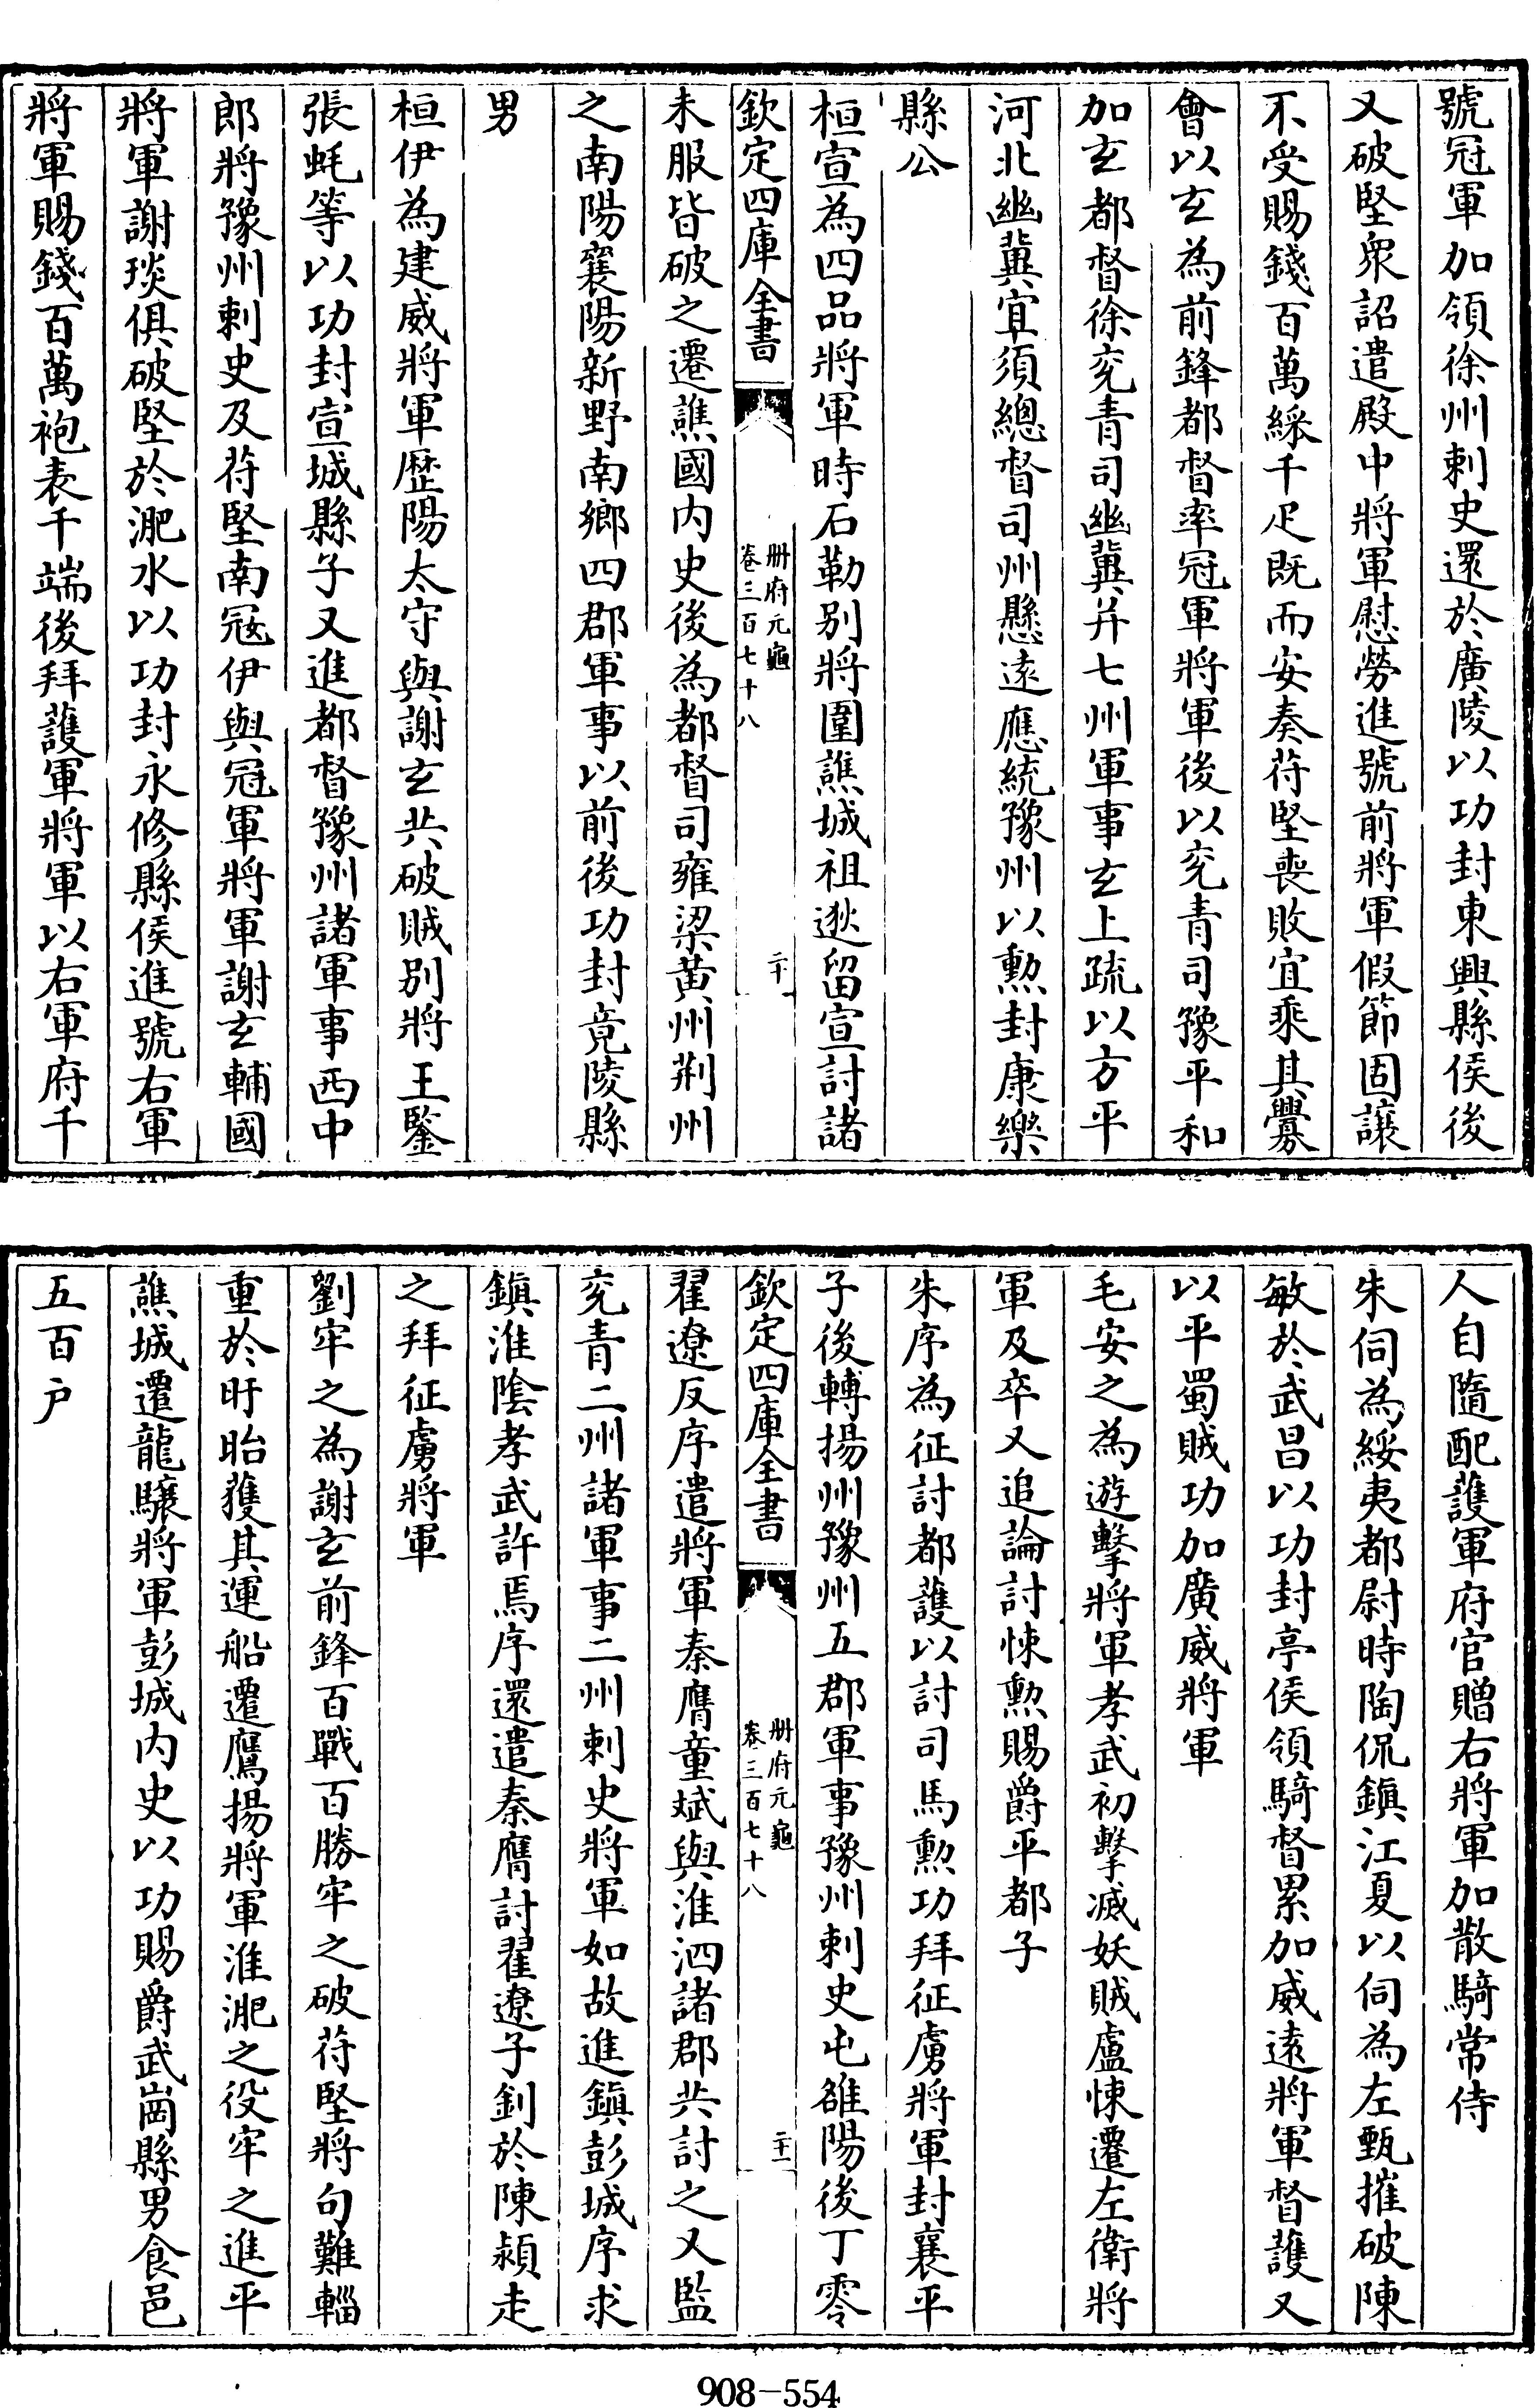 號冠軍加領徐州刺史還於廣陵以功封東興縣侯後
又破堅衆詔遣殿中將軍慰勞進號前將軍假節固讓
不受賜錢百萬綵千疋既而安奏苻堅喪敗宜乘其釁
會以玄為前鋒都督率冠軍將軍後以兖青司豫平和
加玄都督徐兖青司幽冀并七州軍事玄上疏以方平
河北幽冀宜須總督司州懸遠應統豫州以勲封康樂
縣公
桓宣為四品將軍時石勒别將圍譙城祖逖留宣討諸
欽定四庫全書
冊府元龜
卷三百七十八
二十
未服皆破之遷譙國内史後為都督司雍梁黄州荆州
之南陽襄陽新野南鄉四郡軍事以前後功封竟陵縣
男
桓伊為建威將軍歴陽太守與謝玄共破賊别將王鑒
張蚝等以功封宣城縣子又進都督豫州諸軍事西中
郎將豫州刺史及苻堅南冦伊與冠軍將軍謝玄輔國
將軍謝琰俱破堅於淝水以功封永修縣侯進號右軍
將軍賜錢百萬袍表千端後拜護軍將軍以右軍府千
人自隨配護軍府官贈右將軍加散騎常侍
朱伺為綏夷都尉時陶侃鎮江夏以伺為左甄摧破陳
敏於武昌以功封亭侯領騎督累加威遠將軍督護又
以平蜀賊功加廣威將軍
毛安之為遊擊將軍孝武初擊滅妖賊盧悚遷左衛將
軍及卒又追論討悚勲賜爵平都子
朱序為征討都護以討司馬勲功拜征虜將軍封襄平
子後轉揚州豫州五郡軍事豫州刺史屯雒陽後丁零
欽定四庫全書
冊府元龜
卷三百七十八
二十一
翟遼反序遣將軍秦膺童斌與淮泗諸郡共討之又監
兖青二州諸軍事二州刺史將軍如故進鎮彭城序求
鎮淮陰孝武許焉序還遣秦膺討翟遼子釗於陳潁走
之拜征虜將軍
劉牢之為謝玄前鋒百戰百勝牢之破苻堅將句難輜
重於盱眙獲其運船遷鷹揚將軍淮淝之役牢之進平
譙城遷龍驤將軍彭城内史以功賜爵武崗縣男食邑
五百户
908-554